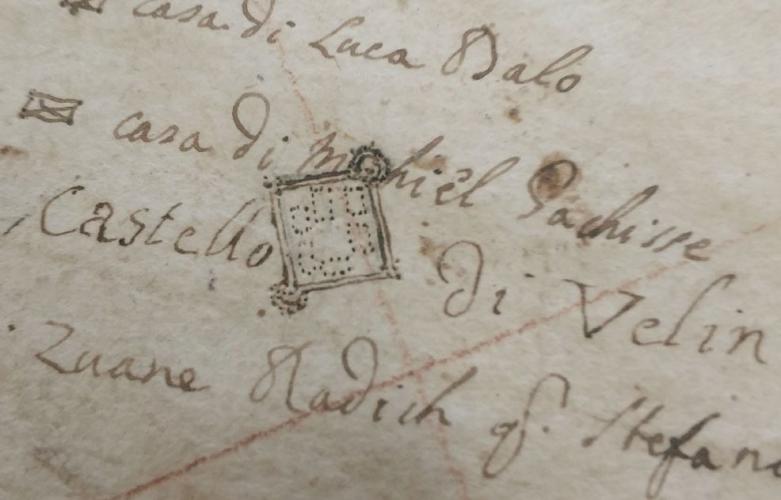 casa di Luca Balo
casa di Mihiel Pachisse
Castello di Velin
Zuane Radich qͫ. Stefano